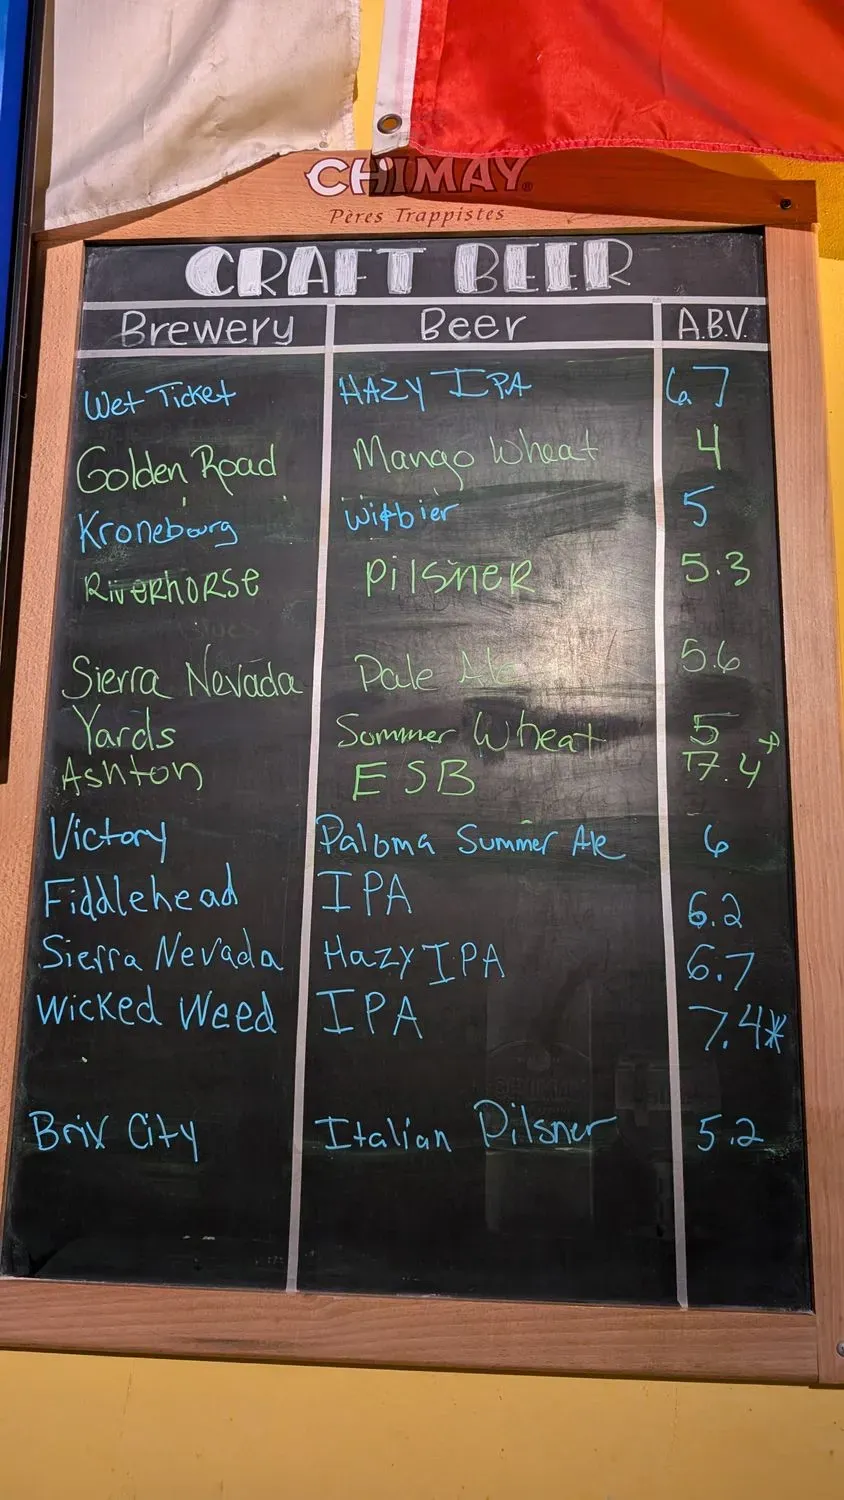 CHIMAY®
Pères Trappistes
CRAFT BEER
Brewery Beer A.B.V.
Wet Ticket HAZY IPA 6.7
Golden Road Mango Wheat 4
Kronebourg Witbier 5
RIVERHORSE PilSNER 5.3
Sierra Nevada Pale Ale 5.6
Yards Summer Wheat 5
Ashton ESB
Victory Paloma Summer Ale 6
Fiddlehead IPA 6.2
Sierra Nevada Hazy IPA 6.7
Wicked Weed IPA 7.4*
Brix City Italian Pilsner 5.2